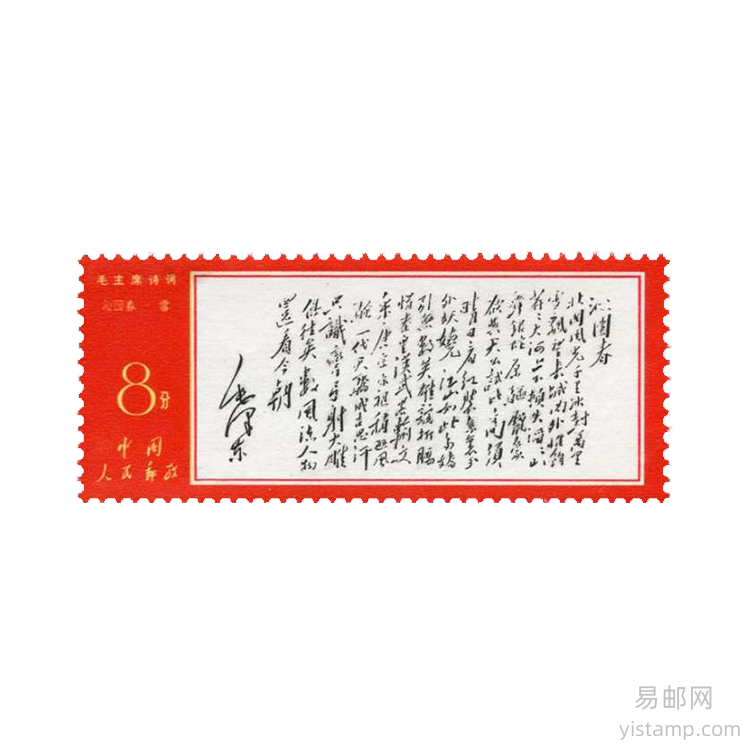 毛主席诗词
沁园春 雪
8分
中国
人民邮政
沁园春
北国风光千里冰封万里
雪飘望长城内外惟馀
莽莽大河上下顿失滔滔山
舞银蛇原驱腊象
欲与天公试比高须
晴日看红装素裹分
外妖娆江山如此多娇
引无数英雄竞折腰
惜秦皇漢武略输文
采唐宗宋祖稍逊风
骚一代天骄成吉思汗
只識弯弓射大雕
俱往矣數風流人物
還看今朝
毛泽东
易邮网
yistamp.com